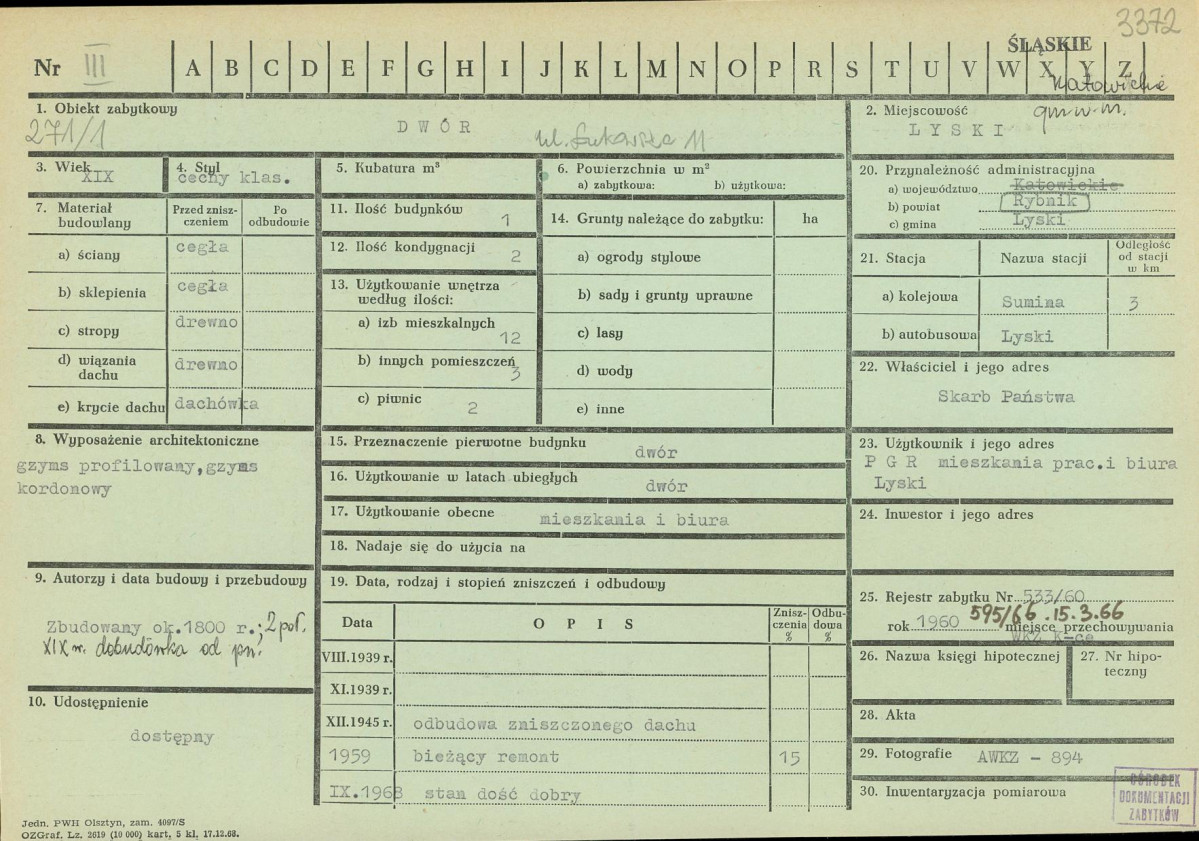 3372
Nr III A B C D E F G H I J K L M N O P R S T U V W X Y Z
ŚLĄSKIE
Katowickie
1. Obiekt zabytkowy
271/1
DWÓR
ul. 11
2. Miejscowość
LYSKI
gm. w m.
3. Wiek
XIX
4. Styl
cechy klas.
5. Kubatura m³
6. Powierzchnia w m²
a) zabytkowa: b) użytkowa:
20. Przynależność administracyjna
a) województwo Katowickie
b) powiat Rybnik
c) gmina Lyski
7. Materiał budowlany
Przed zniszczeniem
Po odbudowie
a) ściany cegła
b) sklepienia cegła
c) stropy drewno
d) wiązania dachu drewno
e) krycie dachu dachówka
11. Ilość budynków 1
12. Ilość kondygnacji 2
13. Użytkowanie wnętrza według ilości:
a) izb mieszkalnych 12
b) innych pomieszczeń 3
c) piwnic 2
14. Grunty należące do zabytku: ha
a) ogrody stylowe
b) sady i grunty uprawne
c) lasy
d) wody
e) inne
21. Stacja Nazwa stacji Odległość od stacji w km
a) kolejowa Sumina 3
b) autobusowa Lyski
22. Właściciel i jego adres
Skarb Państwa
8. Wyposażenie architektoniczne
gzyms profilowany, gzyms
kordonowy
15. Przeznaczenie pierwotne budynku
dwór
16. Użytkowanie w latach ubiegłych
dwór
17. Użytkowanie obecne mieszkania i biura
18. Nadaje się do użycia na
23. Użytkownik i jego adres
P G R mieszkania prac.i biura
Lyski
24. Inwestor i jego adres
9. Autorzy i data budowy i przebudowy
Zbudowany ok.1800 r.; 2 poł.
XIX w. dobudówka od pn.
19. Data, rodzaj i stopień zniszczeń i odbudowy
Data OPIS Zniszczenia % Odbudowa %
VIII.1939 r.
XI.1939 r.
XII.1945 r. odbudowa zniszczonego dachu
1959 bieżący remont 15
IX.1968 stan dość dobry
25. Rejestr zabytku Nr 533/60
595/66 . 15.3.66
rok 1960 miejsce przechowywania
WKZ K-ce
26. Nazwa księgi hipotecznej
27. Nr hipoteczny
10. Udostępnienie
dostępny
28. Akta
29. Fotografie AWKZ - 894
30. Inwentaryzacja pomiarowa
OŚRODEK
DOKUMENTACJI
ZABYTKÓW
Jedn. PWH Olsztyn, zam. 4097/S
OZGraf. Lz. 2619 (10 000) kart, 5 kl. 17.12.68.